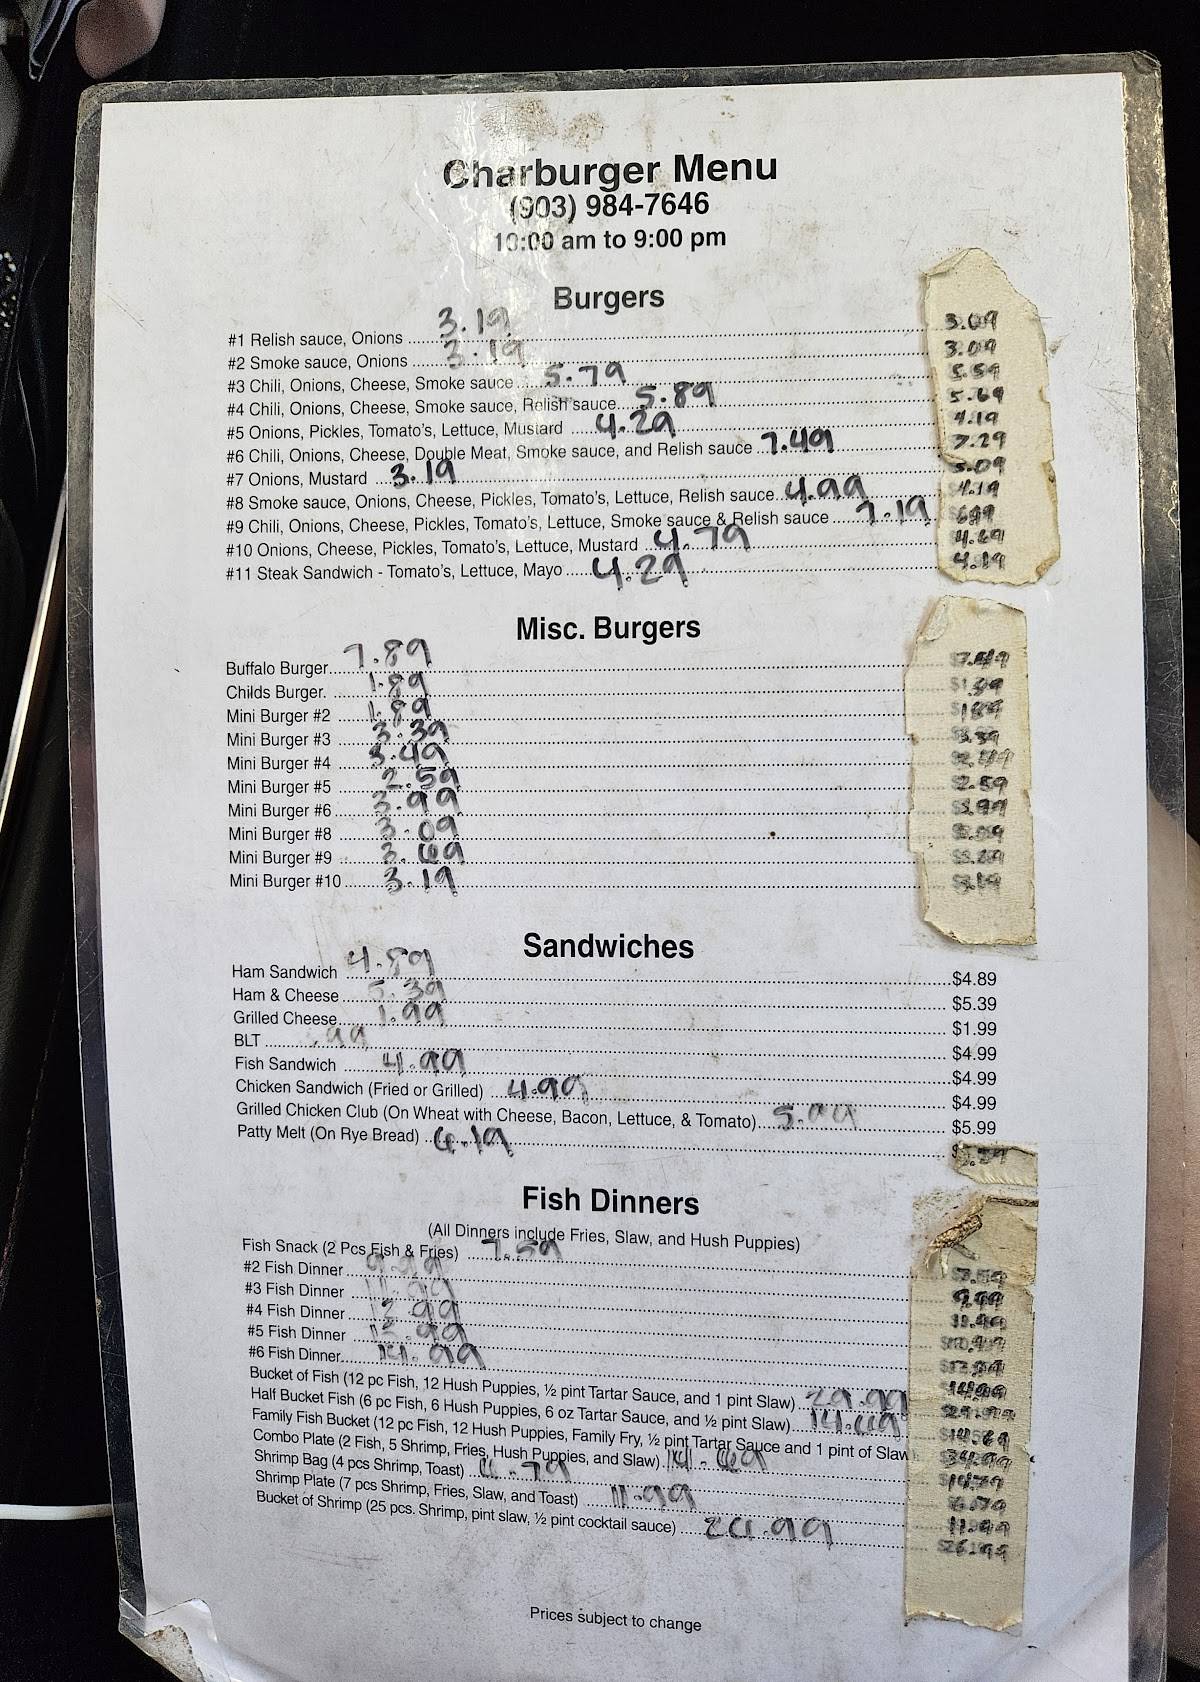 Charburger Menu
(903) 984-7646
10:00 am to 9:00 pm
Burgers
#1 Relish sauce, Onions 3.19 3.09
#2 Smoke sauce, Onions 3.19 3.09
#3 Chili, Onions, Cheese, Smoke sauce 5.79 5.59
#4 Chili, Onions, Cheese, Smoke sauce, Relish sauce 5.89 5.69
#5 Onions, Pickles, Tomato's, Lettuce, Mustard 4.29 4.19
#6 Chili, Onions, Cheese, Double Meat, Smoke sauce, and Relish sauce 7.49 7.29
#7 Onions, Mustard 3.19 3.09
#8 Smoke sauce, Onions, Cheese, Pickles, Tomato's, Lettuce, Relish sauce 4.99 $4.19
#9 Chili, Onions, Cheese, Pickles, Tomato's, Lettuce, Smoke sauce & Relish sauce 7.19
#10 Onions, Cheese, Pickles, Tomato's, Lettuce, Mustard 4.79 4.69
#11 Steak Sandwich - Tomato's, Lettuce, Mayo 4.29 4.19
Misc. Burgers
Buffalo Burger 7.89
Childs Burger. 1.89
Mini Burger #2 1.89
Mini Burger #3 3.39
Mini Burger #4 3.49
Mini Burger #5 2.59 2.59
Mini Burger #6 3.99
Mini Burger #8 3.09
Mini Burger #9 3.69
Mini Burger #10 3.19
Sandwiches
Ham Sandwich 4.89 $4.89
Ham & Cheese 5.39 $5.39
Grilled Cheese 1.99 $1.99
BLT .99 $4.99
Fish Sandwich 4.99 $4.99
Chicken Sandwich (Fried or Grilled) 4.99 $4.99
Grilled Chicken Club (On Wheat with Cheese, Bacon, Lettuce, & Tomato) 5.99 $5.99
Patty Melt (On Rye Bread)
Fish Dinners
(All Dinners include Fries, Slaw, and Hush Puppies)
Fish Snack (2 Pcs Fish & Fries) 7.59 7.59
#2 Fish Dinner 9.99 9.99
#3 Fish Dinner 11.99
#4 Fish Dinner 12.99
#5 Fish Dinner
#6 Fish Dinner 14.99
Bucket of Fish (12 pc Fish, 12 Hush Puppies, ½ pint Tartar Sauce, and 1 pint Slaw) 29.99
Half Bucket Fish (6 pc Fish, 6 Hush Puppies, 6 oz Tartar Sauce, and ½ pint Slaw) 14.69
Family Fish Bucket (12 pc Fish, 12 Hush Puppies, Family Fry, ½ pint Tartar Sauce and 1 pint of Slaw)
Combo Plate (2 Fish, 5 Shrimp, Fries, Hush Puppies, and Slaw) 14.69
Shrimp Bag (4 pcs Shrimp, Toast)
Shrimp Plate (7 pcs Shrimp, Fries, Slaw, and Toast) 11.99 11.99
Bucket of Shrimp (25 pcs. Shrimp, pint slaw, ½ pint cocktail sauce)
Prices subject to change